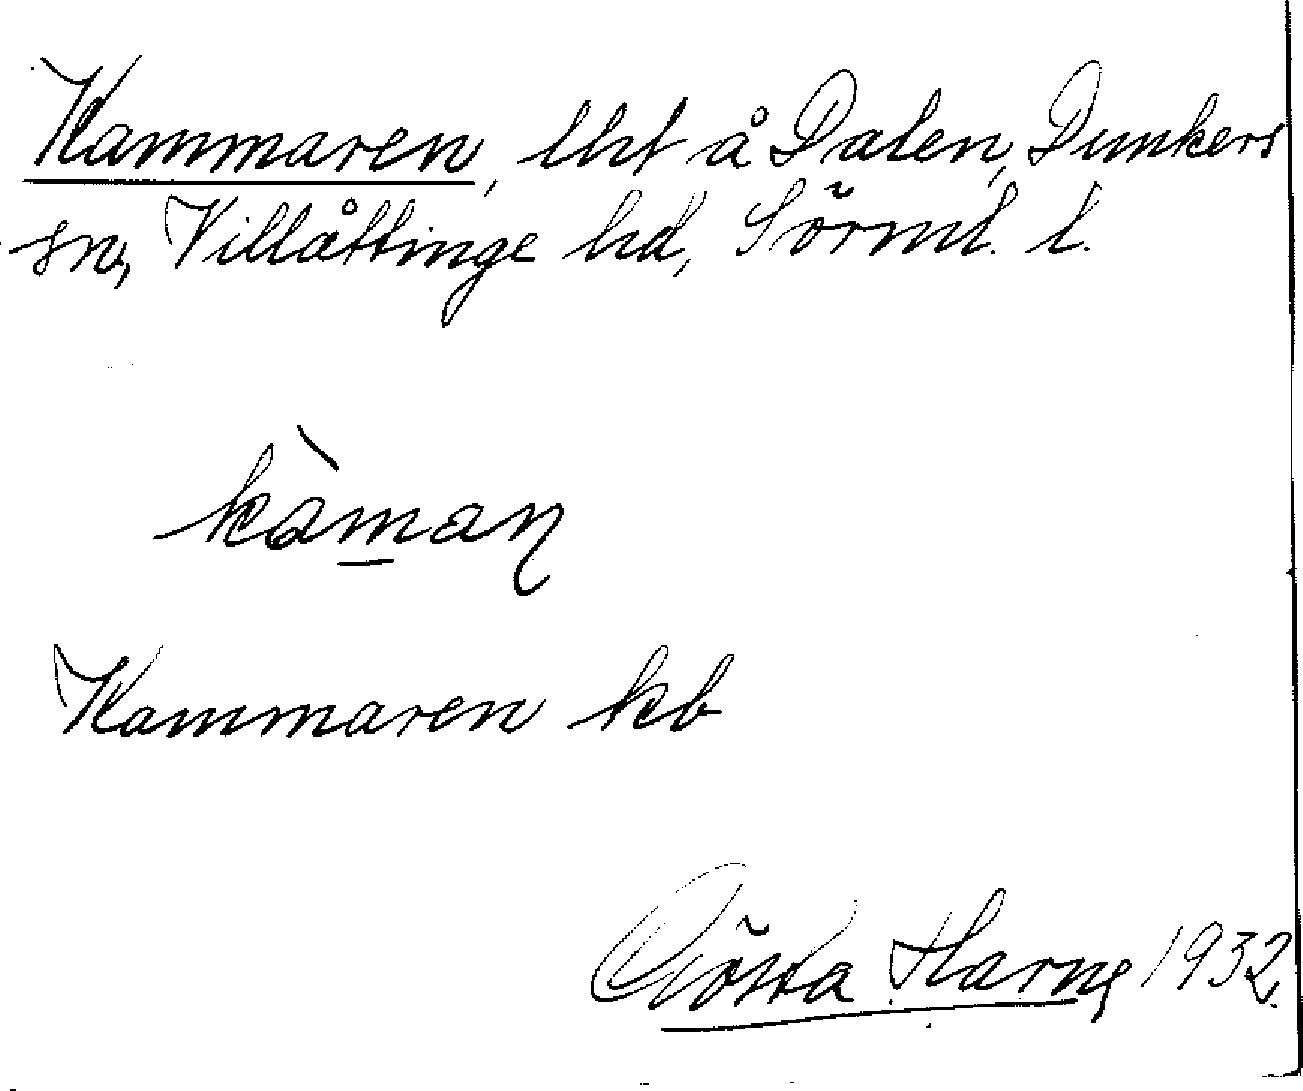 Kammaren, lht å Dalen, Dunkers
sn, Villåttinge hd, Sörml. l.
kàmaɳ
Kammaren kb
Gösta Harne 1932.